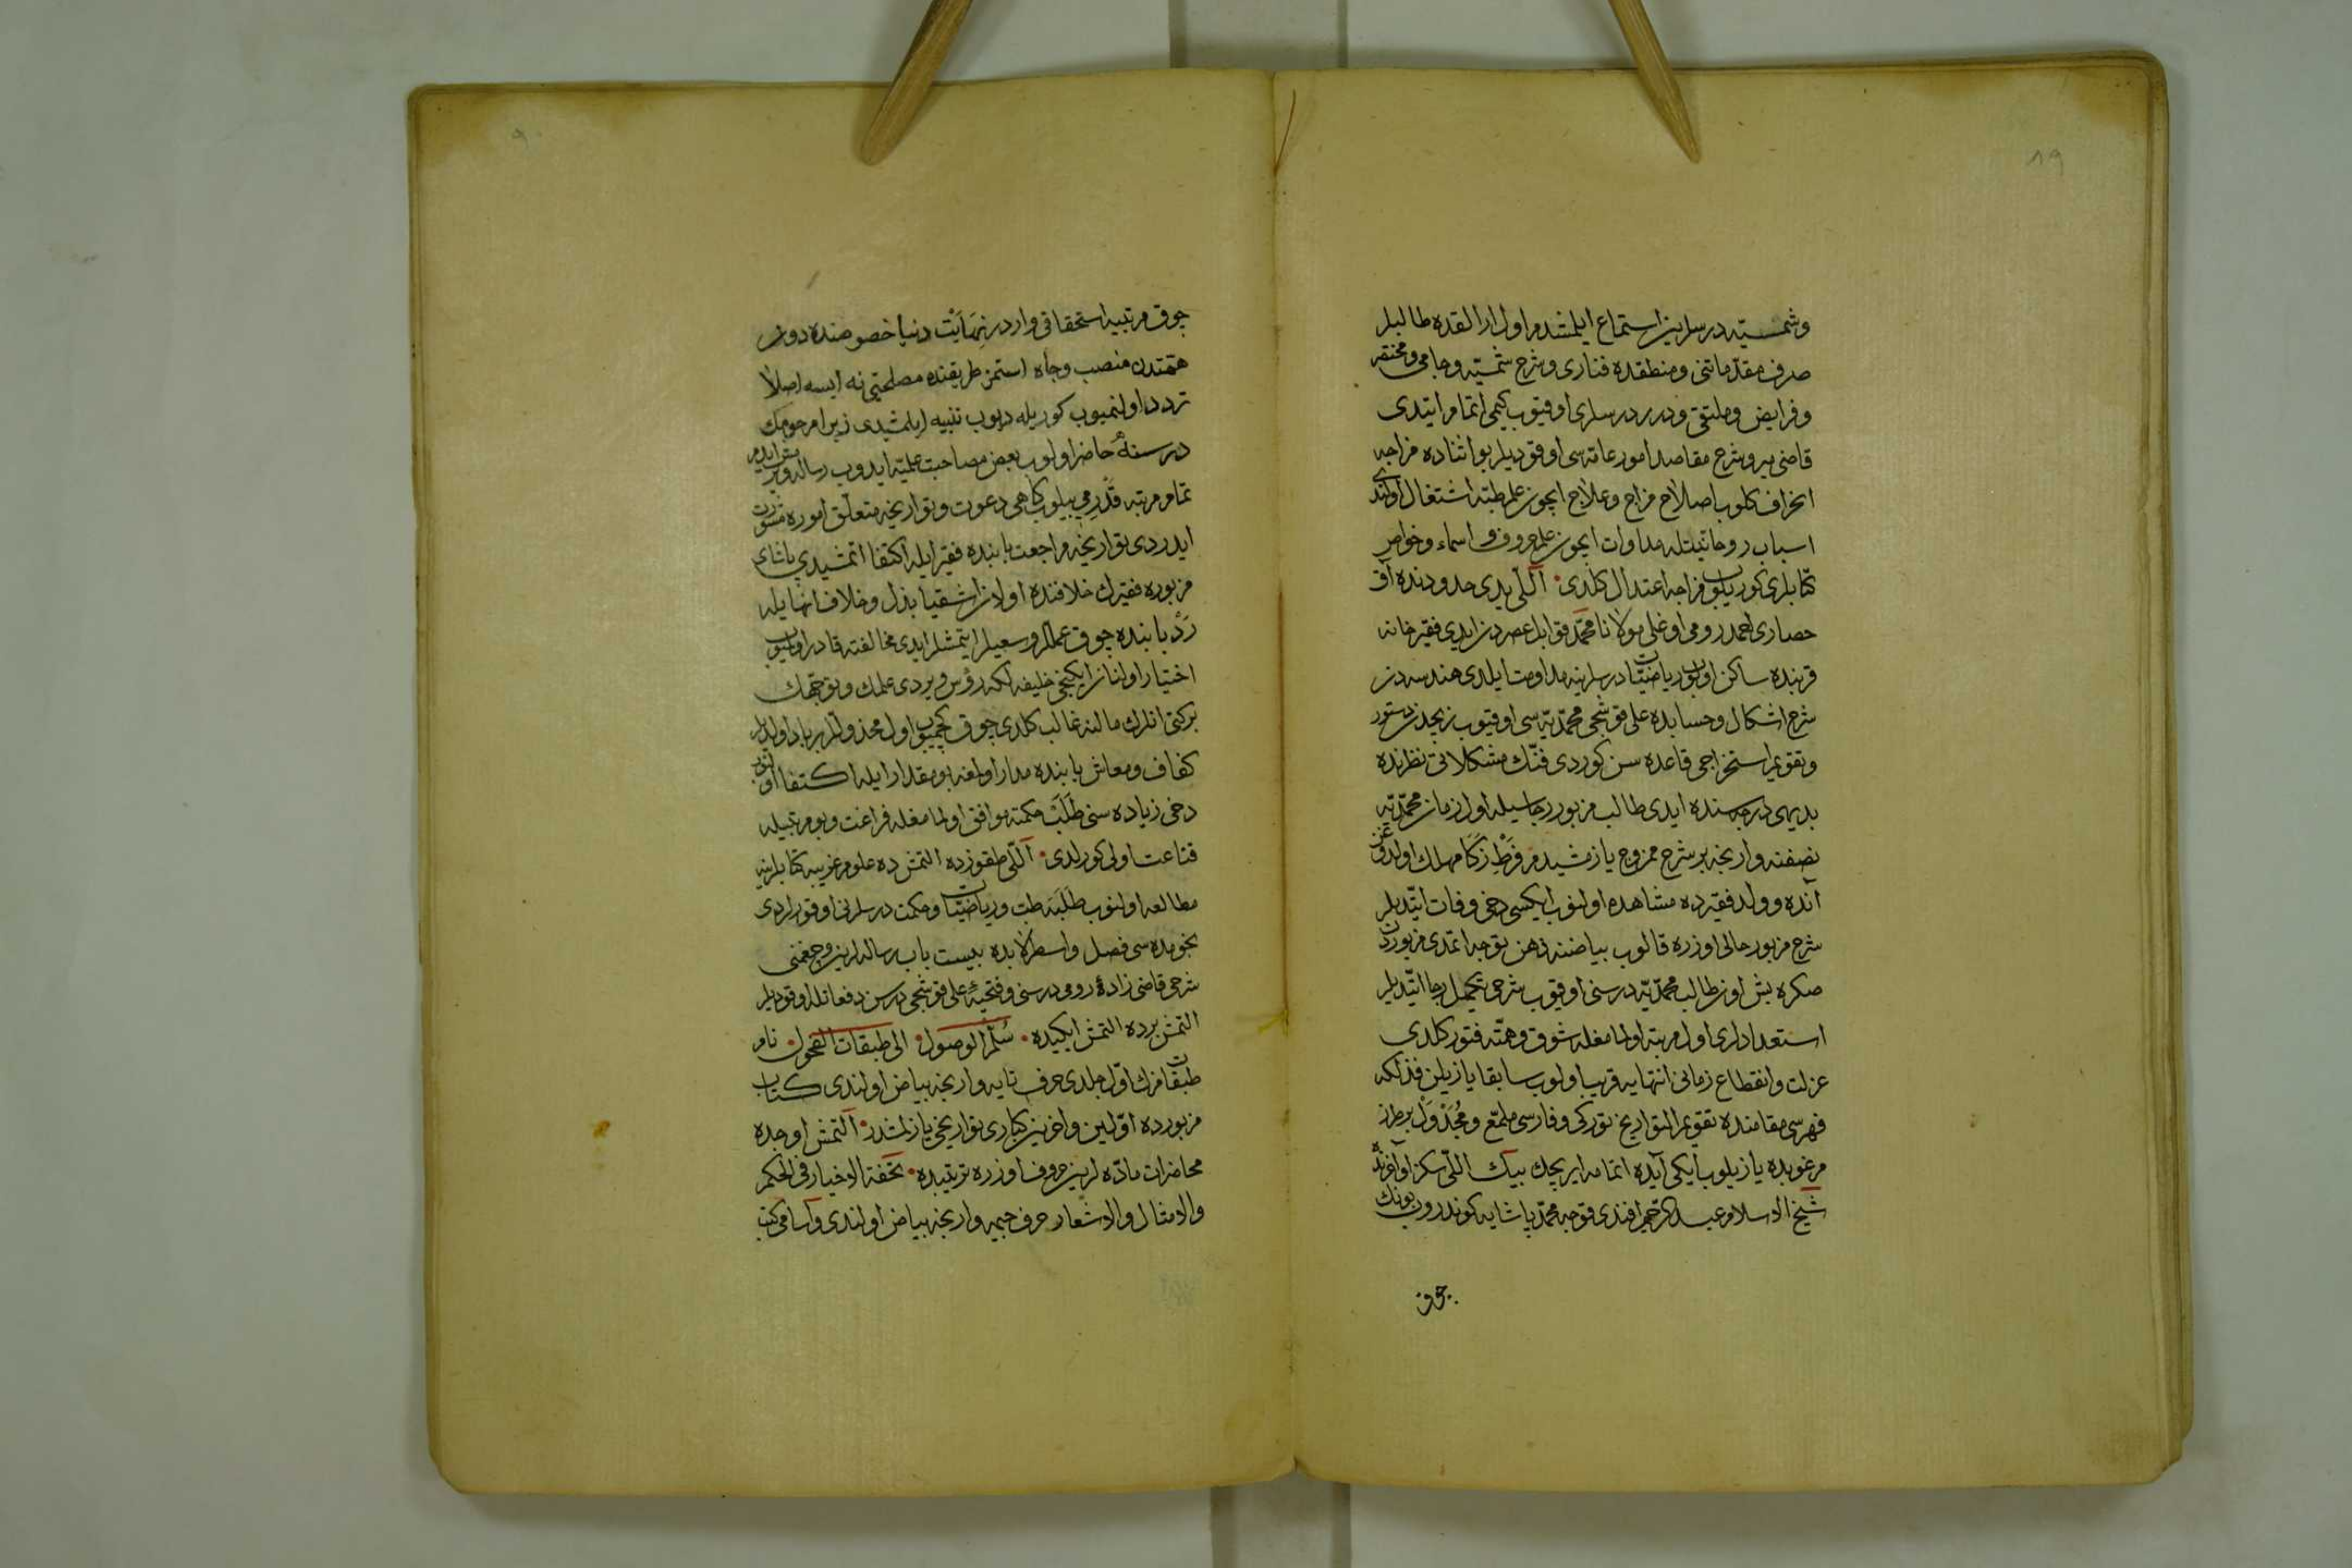 ١٩
وشمسيّه درسلرين استماع ايلمشدم اول ارالقده طالبلر
صرف مقدّماتنى ومنطقده فنارى وشرح شمسيّه وجامى ومختصر
وفرايض وملتقى ودرر درسلرى اوقيوب كيمى اتمام ايتدى
قاضى مير وشرح مقاصد امور عامّه سى اوقوديلر بو اثناده مزاجه
انحراف كلوب اصلاح مزاج وعلاج ايچون علم طبّه اشتغال اولندى
اسباب روحانيّتله مداوات ايچون علم حروف و اسماء وخواص
كتابلرى كوريلوب مزاجه اعتدال كلدى • اللّى يدى حدودنده آق
حصارى احمد رومى اوغلى مولانا محمّد قوابل عصردن ايدى فقيرخانه
قربنده ساكن اولوب رياضيّات درسلرينه مداومت ايلدى هندسه دن
شرح اشكال وحسابده على قوشجى محمّديّه سى اوقيوب زيجدن دستور
وتقويم استخراجى قاعده سن كوردى فنّك مشكلاتى نظرنده
بديهى درجه سنده ايدى طالب مزبور رجاسيله اول زمان محمّديّه
نصفنه وارنجه بر شرح ممزوج يازمشيدم فرْطِ زَكا مهلك اولدوغن
آنده وولد فقيرده مشاهده اولنوب ايكيسى دخى وفات ايتديلر
شرح مزبور حالى اوزره قالوب بياضنه ذهن توجه اتمدى مزبوردن
صكره بش اون طالب محمّديّه درسنى اوقيوب شرحى تكميل رجا ايتديلر
استعدادلرى اول مرتبه اولمامغله شوق وهمّته فتور كلدى
عزلت وانقطاع زمانى انتهايه قريب اولوب سابقا يازيلن فذلكه
فهرسى مقامنده تقويم التواريخ توركى وفارسى ملمّع ومُجَدْوَلْ بر طرز
مرغوبده يازيلوب ايكى آيده اتمامه ايريجك بيك اللّى سكز اواخرنده
شيخ الاسلام عبد الرّحيم افندى قوجه محمّد پاشايه كوندروب بونك
چوق
٩
چوق مرتبيه استحقاقى واردر نِهَايَتْ دنيا خصوصنده دون
همّتدن منصب وجاه استمز طريقنده مصلحتى نه ايسه اصلا
تردد اولنميوب كوريله ديوب تنبيه ايلمشيدى زيرا مرحومك
درسنهٔ حاضر اولوب بعض مصاحبت علميّه ايدوب رساله ويرمش ايدم
تمام مرتبه قَدْرمى بيلوب كاهى دعوت وتواريخه متعلّق اموره مشورت
ايدردى تواريخه مراجعت بابنده فقير ايله اكتفا اتمشيدى پاشاى
مزبوره فقيرك خلافنده اولان اشقيا بذل وخلاف انها ايله
رَدْ بابنده چوق عمللر وسعيلر ايتمشلر ايدى مخالفته قادر اولميوب
اختيار اولنان ايكنجى خليفه لكه رؤس ويردى علمك وتوجّهك
بركتى انلرك مالنه غالب كلدى چوق كچميوب اول مخذوللر برباد اولديلر
كفاف ومعاش بابنده مدار اولغه بو مقدار ايله اكتفا اولنوب
دخى زياده سنى طَلَبْ حكمته موافق اولمامغله فراغت وبو مرتبيله
قناعت اولى كورلدى • اللّى طقوزده التمش ده علوم غريبه كتابلرينه
مطالعه اولنوب طَلَبَه طب ورياضيّات وحكمت درسلرنى اوقورلردى
نجومده سى فصل واسطرلابده بيست باب رساله لرين وچغمينى
شرحى قاضى زادهٔ رومى درسنى وفتحيّهٔ على قوشجى درسن دفعاتله اوقوديلر
التمش برده التمش ايكيده • سُلّم الوصول • الى طبقات الفحول • نام
طبقاتمزك اوّل جلدى حرف تايه وارنجه بياض اولندى كتاب
مزبورده اوّلين واخرين كبارى تواريخى يازلمشدر • التمش اوچده
محاضرات مادّه لرين حروف اوزره ترتيبده • تحفة الاخيار فى الحكم
والامثال والاشعار حرف جيمه وارنجه بياض اولندى واسامى كتب